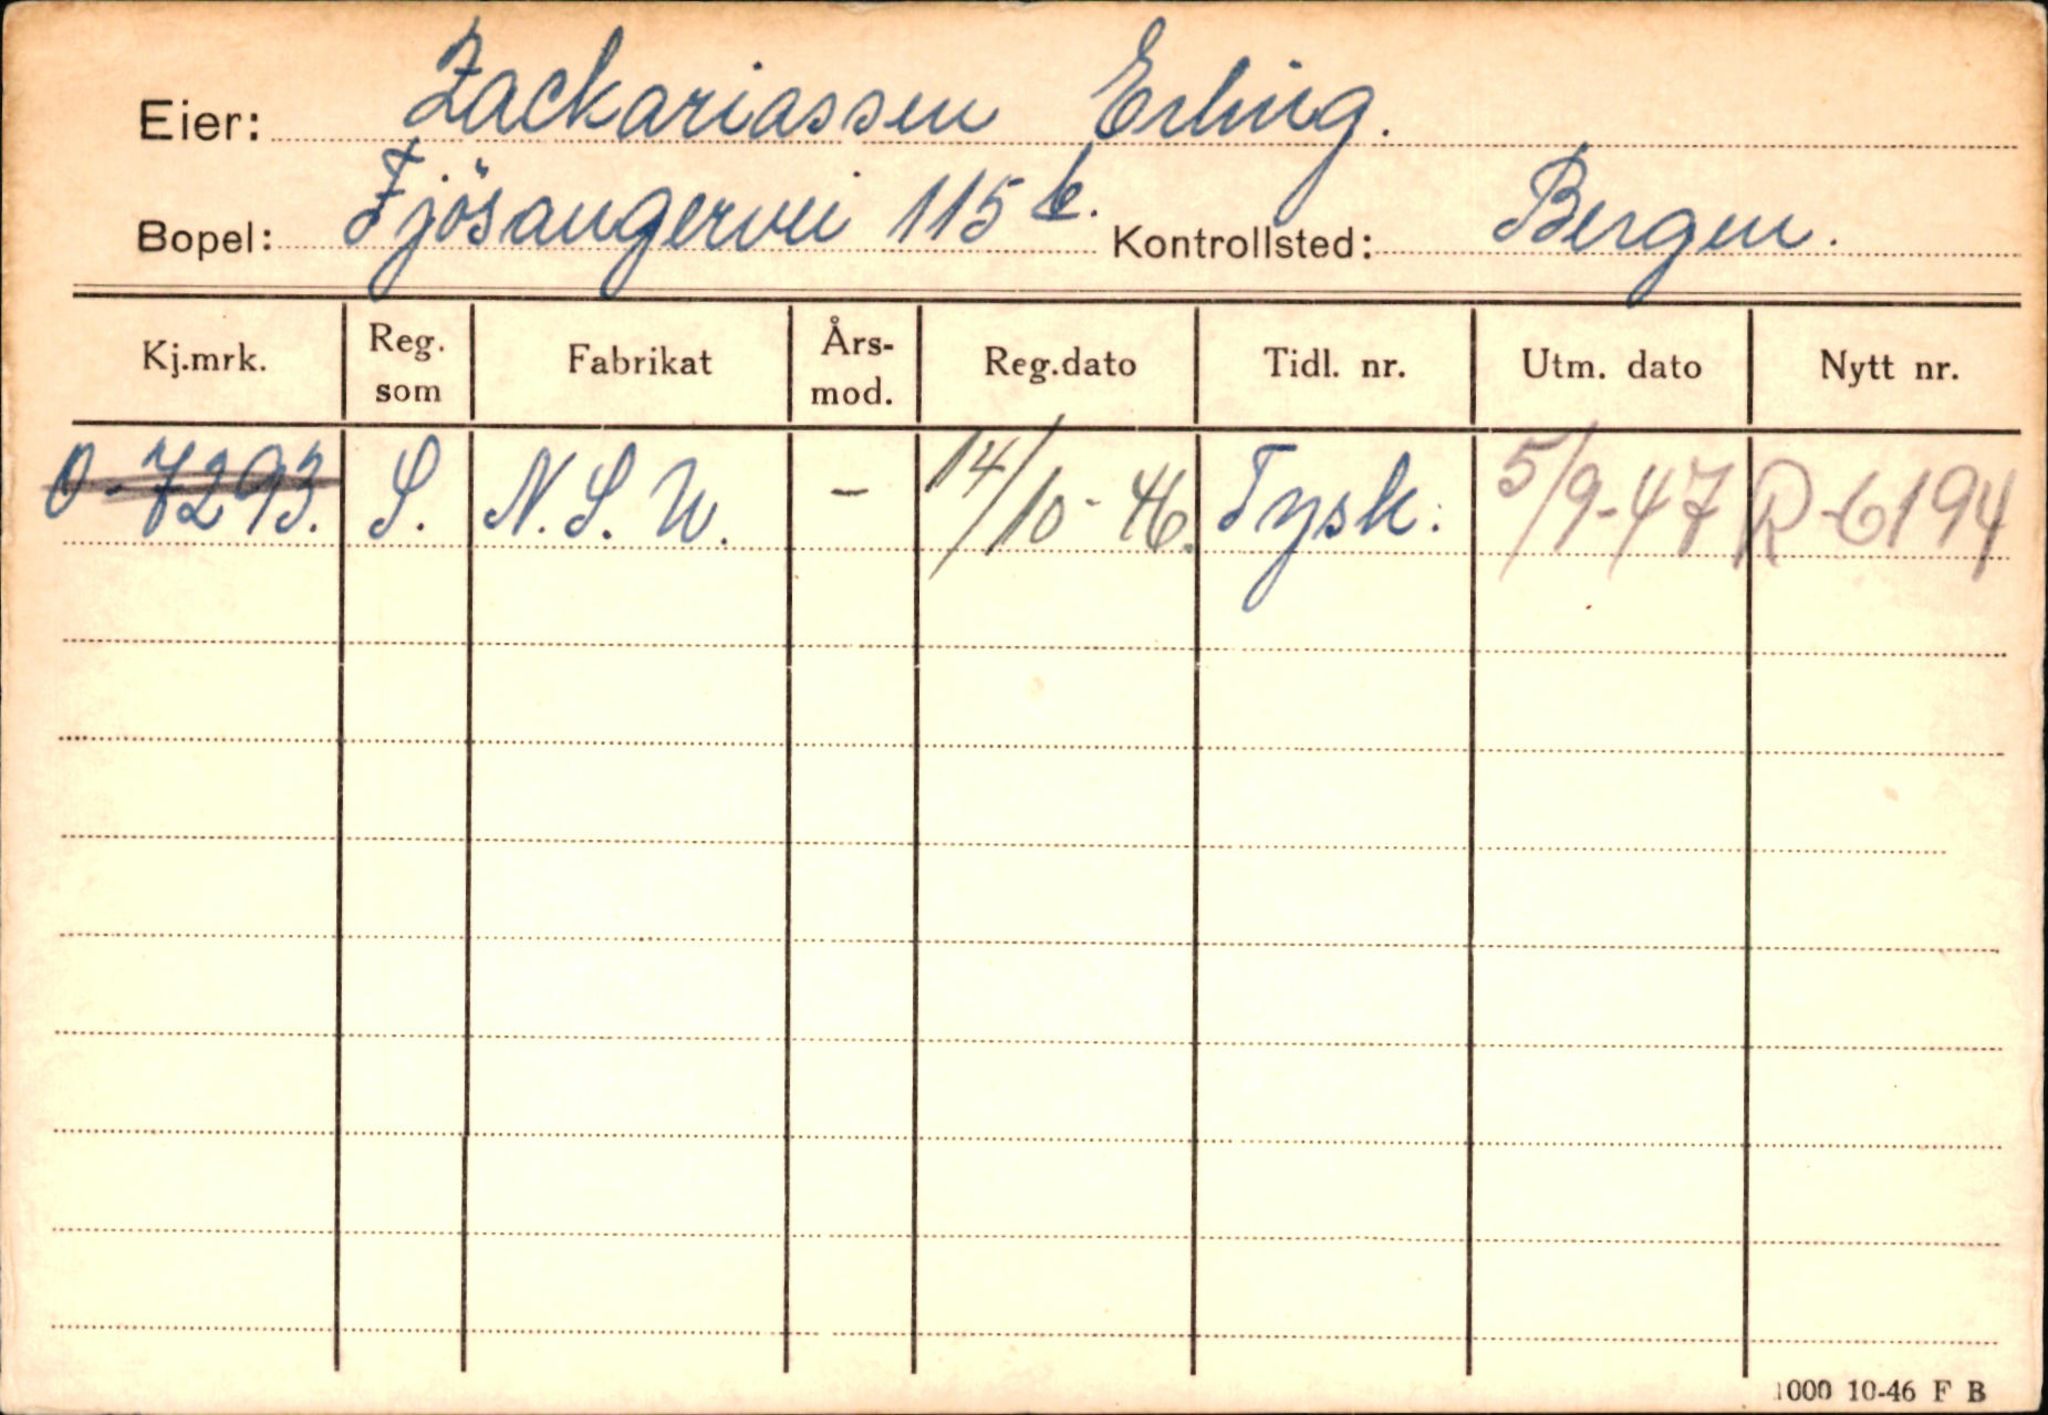 Eier: Zackariassen Erling.
Bopel: Fjösangervei 115 b. Kontrollsted: Bergen.
Kj.mrk. Reg. som Fabrikat Års-mod. Reg.dato Tidl. nr. Utm. dato Nytt nr.
O-7293. S. N.S.U. - 14/10-46. Tysk. 5/9-47 R-6194
1000 10-46 F B